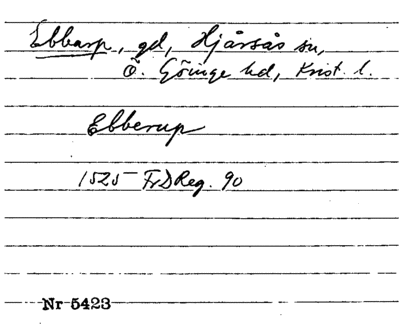 Ebbarp, gd, Hjärsås sn,
Ö. Göinge hd, Krist. l.
Ebberup
1525 FrDReg. 90
Nr 5423